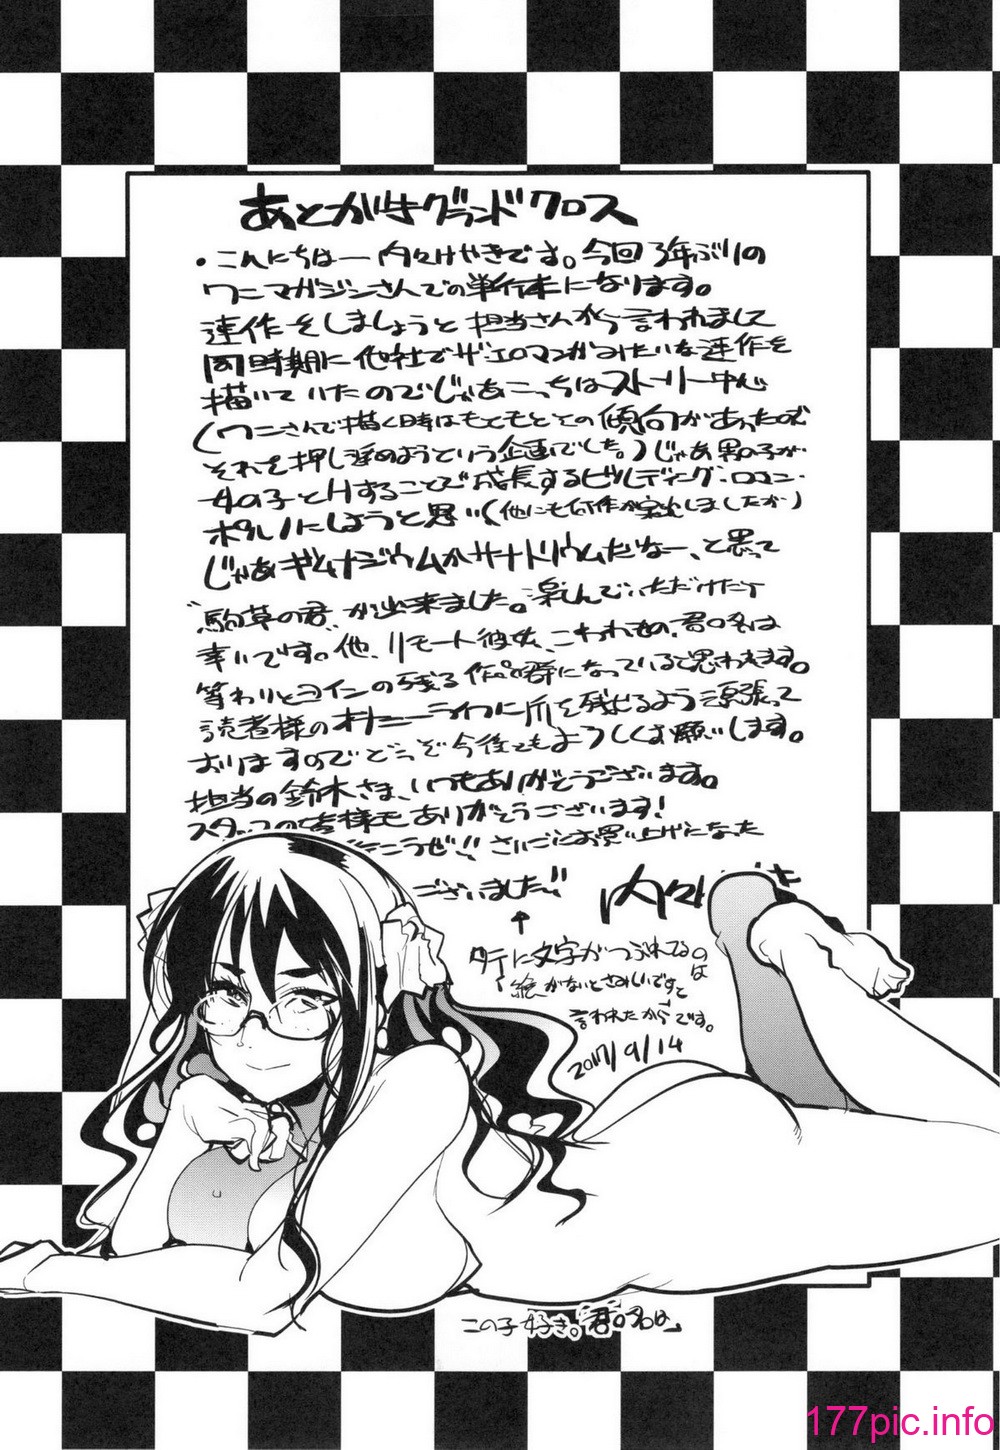 あとがきグランドクロス
・こんにちはー内々けやきです。今回3年ぶりの
ワニマガジンさんでの単行本になります。
連作をしましょうと担当さんから言われまして
同時期に他社でザ・エロマンガみたいな連作を
描いていたのでじゃあこっちはストーリー中心
(ワニさんで描く時はもともとその傾向があったので
それを押し進めようという企画でした。)じゃあ男の子が
女の子とHすることで成長するビルディング・ロマン・
ポルノにしようと思い(他にも何作か突出しましたが)
じゃあギムナジウムかサナトリウムだなー、と思って
"駒草の君"が出来ました。楽しんでいただけたら
幸いです。他、リモート彼女、こわれもの、君の名は
等わりとヨインの残る作品群になっていると思われます。
読者様のオナニーライフに爪を残せるよう頑張って
おりますのでどうぞ今後ともよろしくお願いします。
担当の鈴木さま、いつもありがとうございます。
スタッフの皆様もありがとうございます!
こうぜ!! さいごにお買い上げになった
ございました!!
内々
↑
タテに文字がつぶれてるのは
絵がないとさみしいですと
言われたからです。
2017/9/14
この子好き。「君の名は」
177pic.info